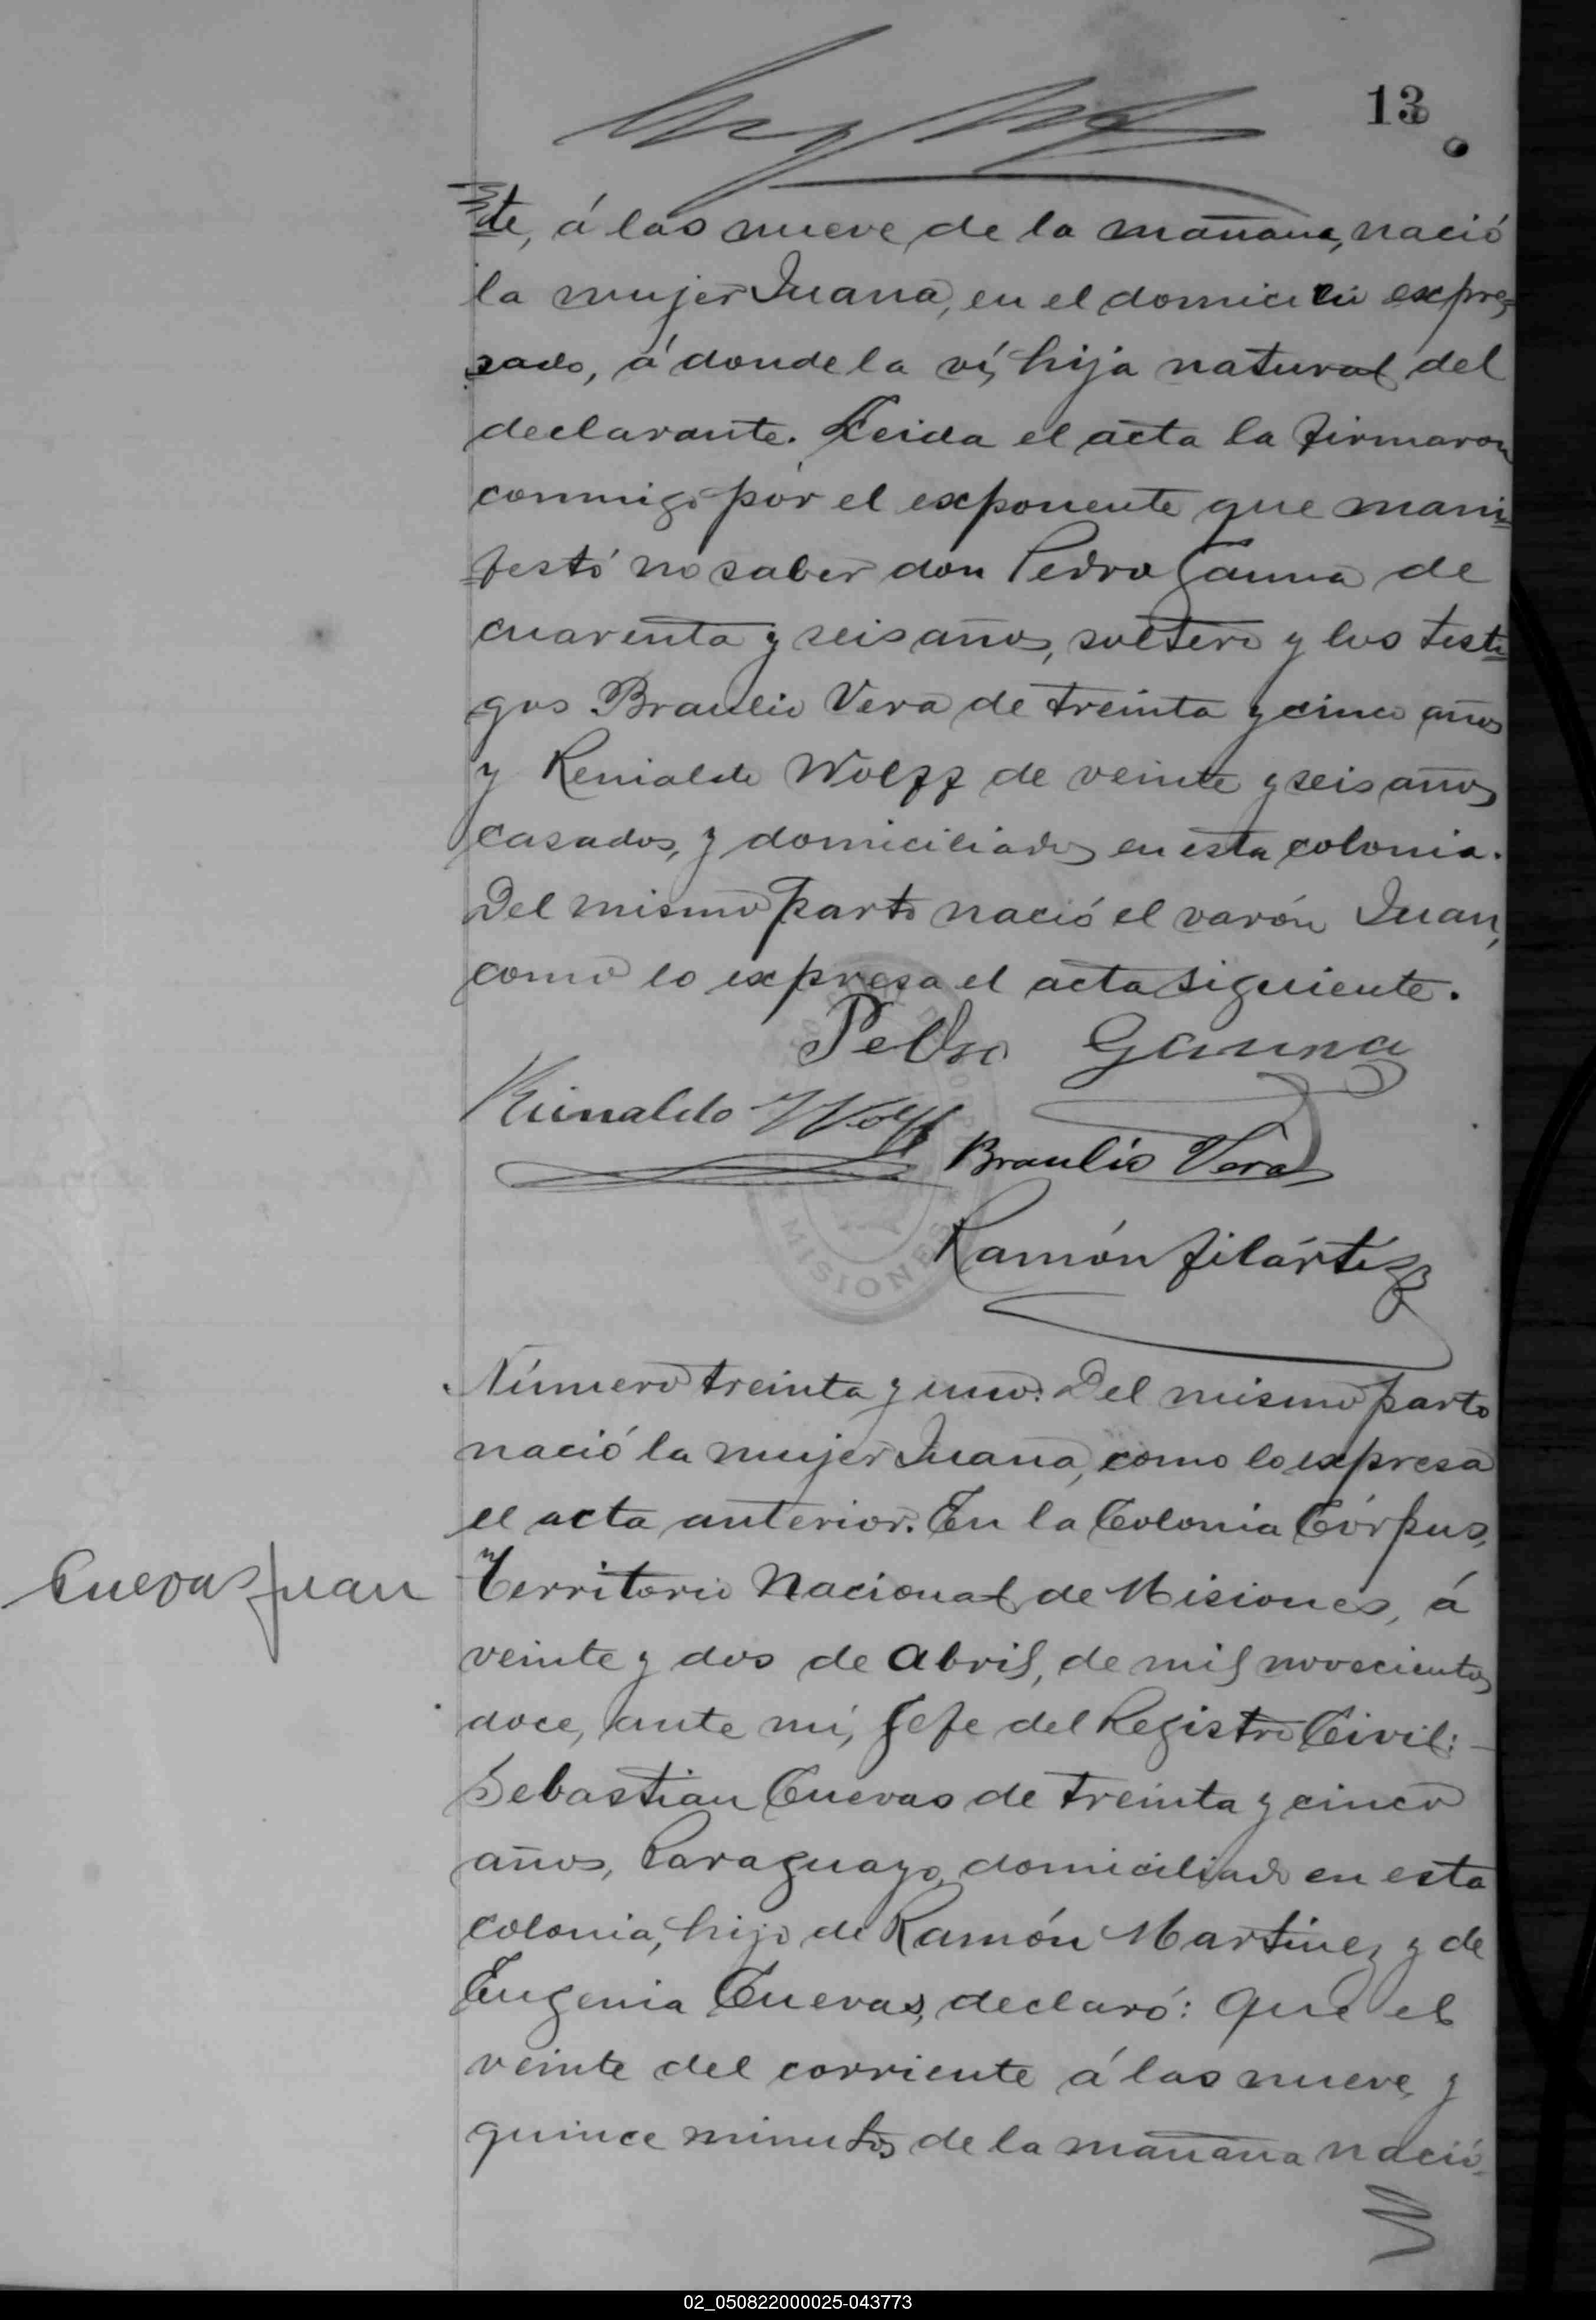 13
te, á las nueve de la mañana, nació
la mujer Juana, en el domicilio expre-
sado, á donde la ví, hija natural del
declarante. Leida el acta la firmaron
conmigo por el exponente que mani-
festó no saber don Pedro Gauna de
cuarenta y seis años, soltero y los testi-
gos Braulio Vera de treinta y cinco años
y Renialdo Wolff de veinte y seis años
casados, y domiciliados en esta colonia.
Del mismo parto nació el varón Juan,
como lo expresa el acta siguiente.
Pedro Gauna
Reinaldo Wolff
Braulio Vera
Ramón Filártiga
MISIONES
Número treinta y uno: Del mismo parto
nació la mujer Juana, como lo expresa
el acta anterior. En la Colonia Córpus,
Territorio Nacional de Misiones, á
veinte y dos de Abril, de mil novecientos
doce, ante mí, Jefe del Registro Civil:-
Cuevas Juan
Sebastian Cuevas de treinta y cinco
años, Paraguayo, domiciliado en esta
colonia, hijo de Ramón Martinez y de
Eugenia Cuevas, declaró: Que el
veinte del corriente á las nueve y
quince minutos de la mañana nació
02_050822000025-043773